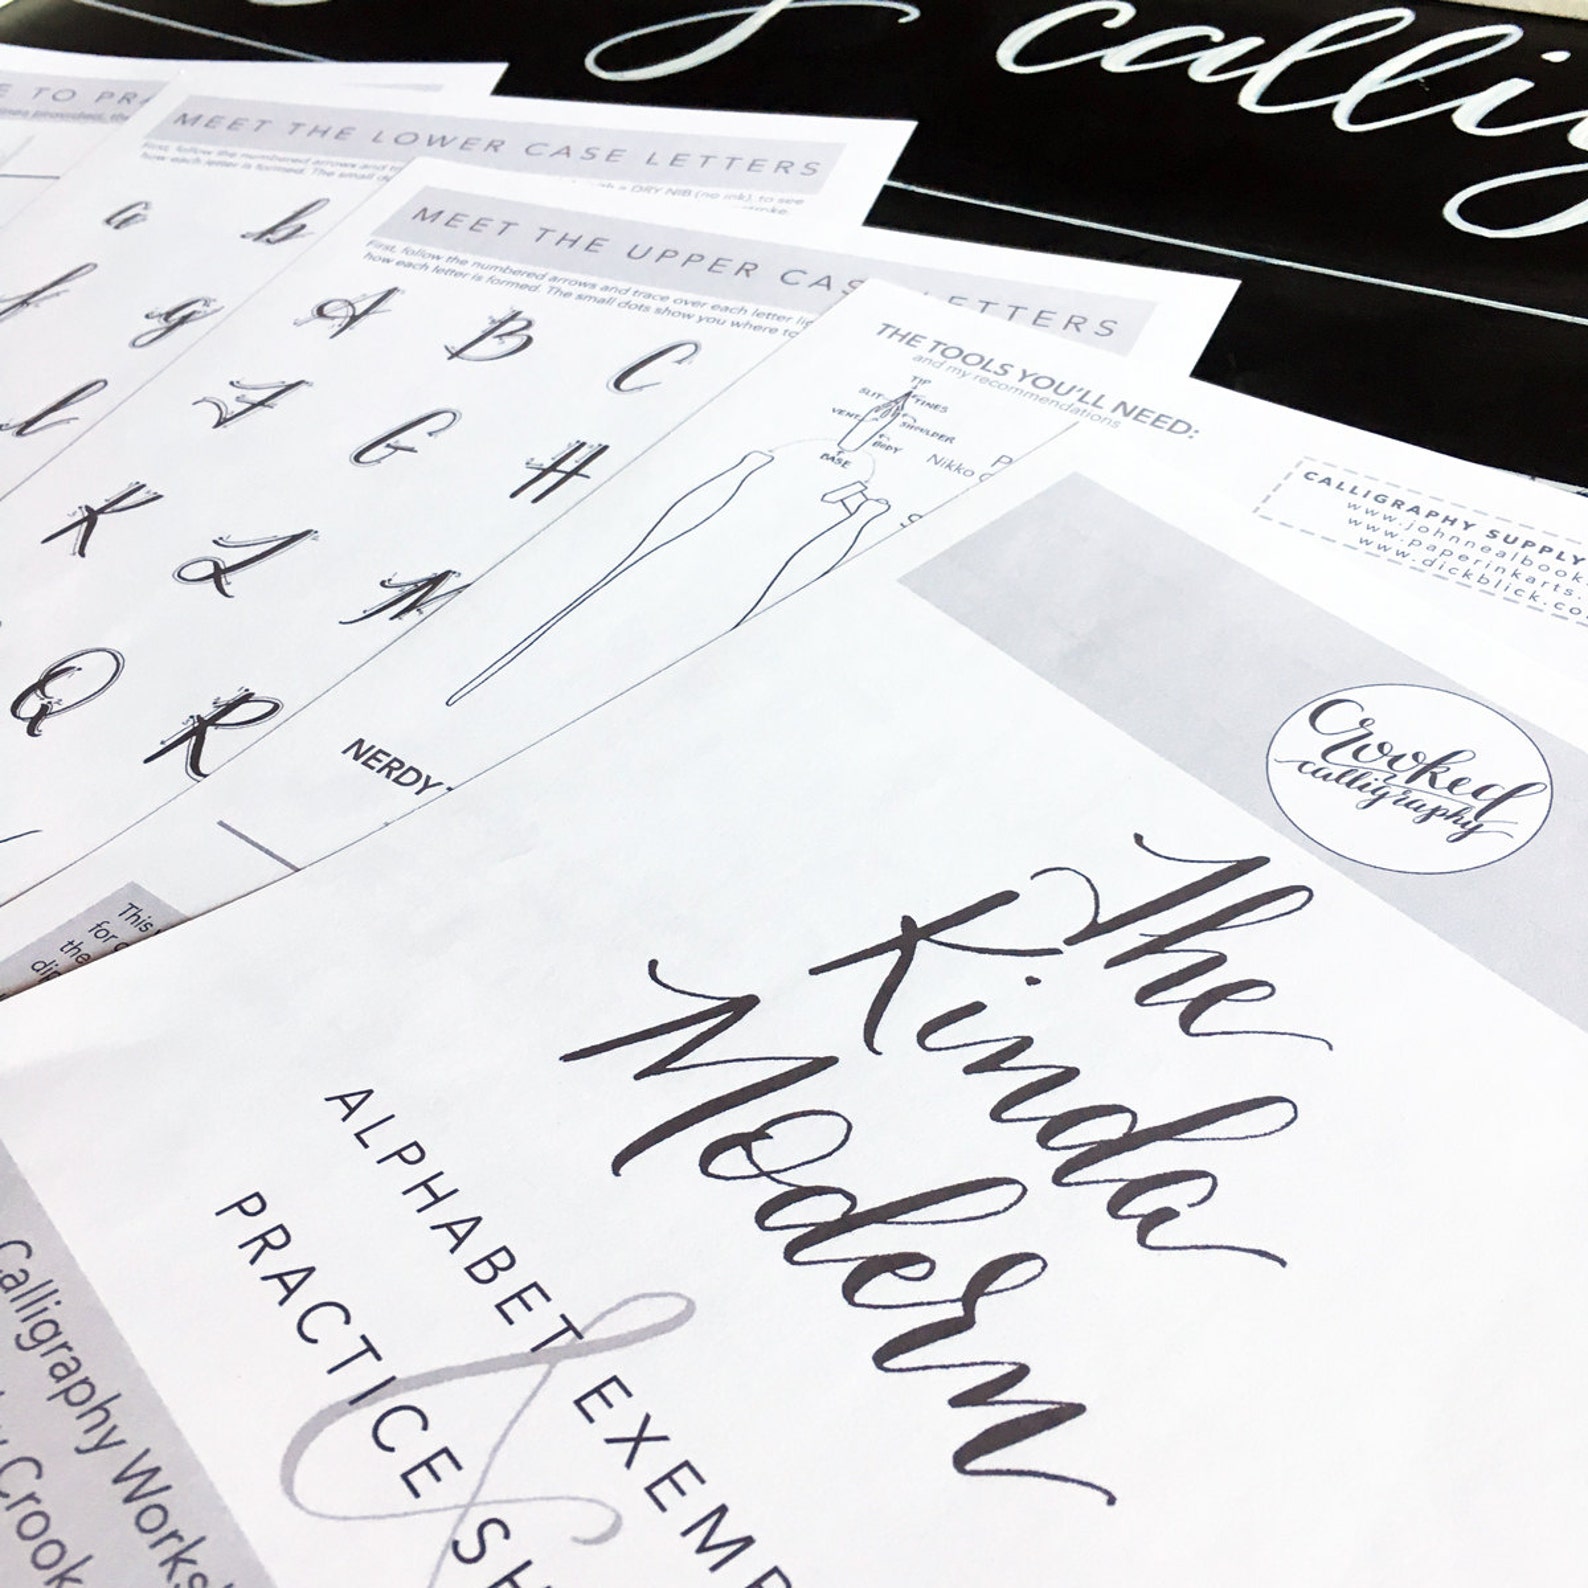 calli
E TO PRA
MEET THE LOWER CASE LETTERS
First, follow the numbered arrows and
how each letter is formed. The small
DRY NIB (no ink), to see
a b
f g
l
MEET THE UPPER CASE LETTERS
First, follow the numbered arrows and trace over each letter
how each letter is formed. The small dots show you where to
A B C
F G H
K L M
Q R
THE TOOLS YOU'LL NEED:
and my recommendations
TIP
SLIT
TINES
VENT
SHOULDER
BODY
BASE
Nikko G
NERDY
CALLIGRAPHY SUPPLY
www.johnnealbooks.
www.paperinkarts.
www.dickblick.co
This
for
the
dip
Crooked
calligraphy
The
Kinda
Modern
ALPHABET EXEMP
&
PRACTICE SH
Calligraphy Works
Crook